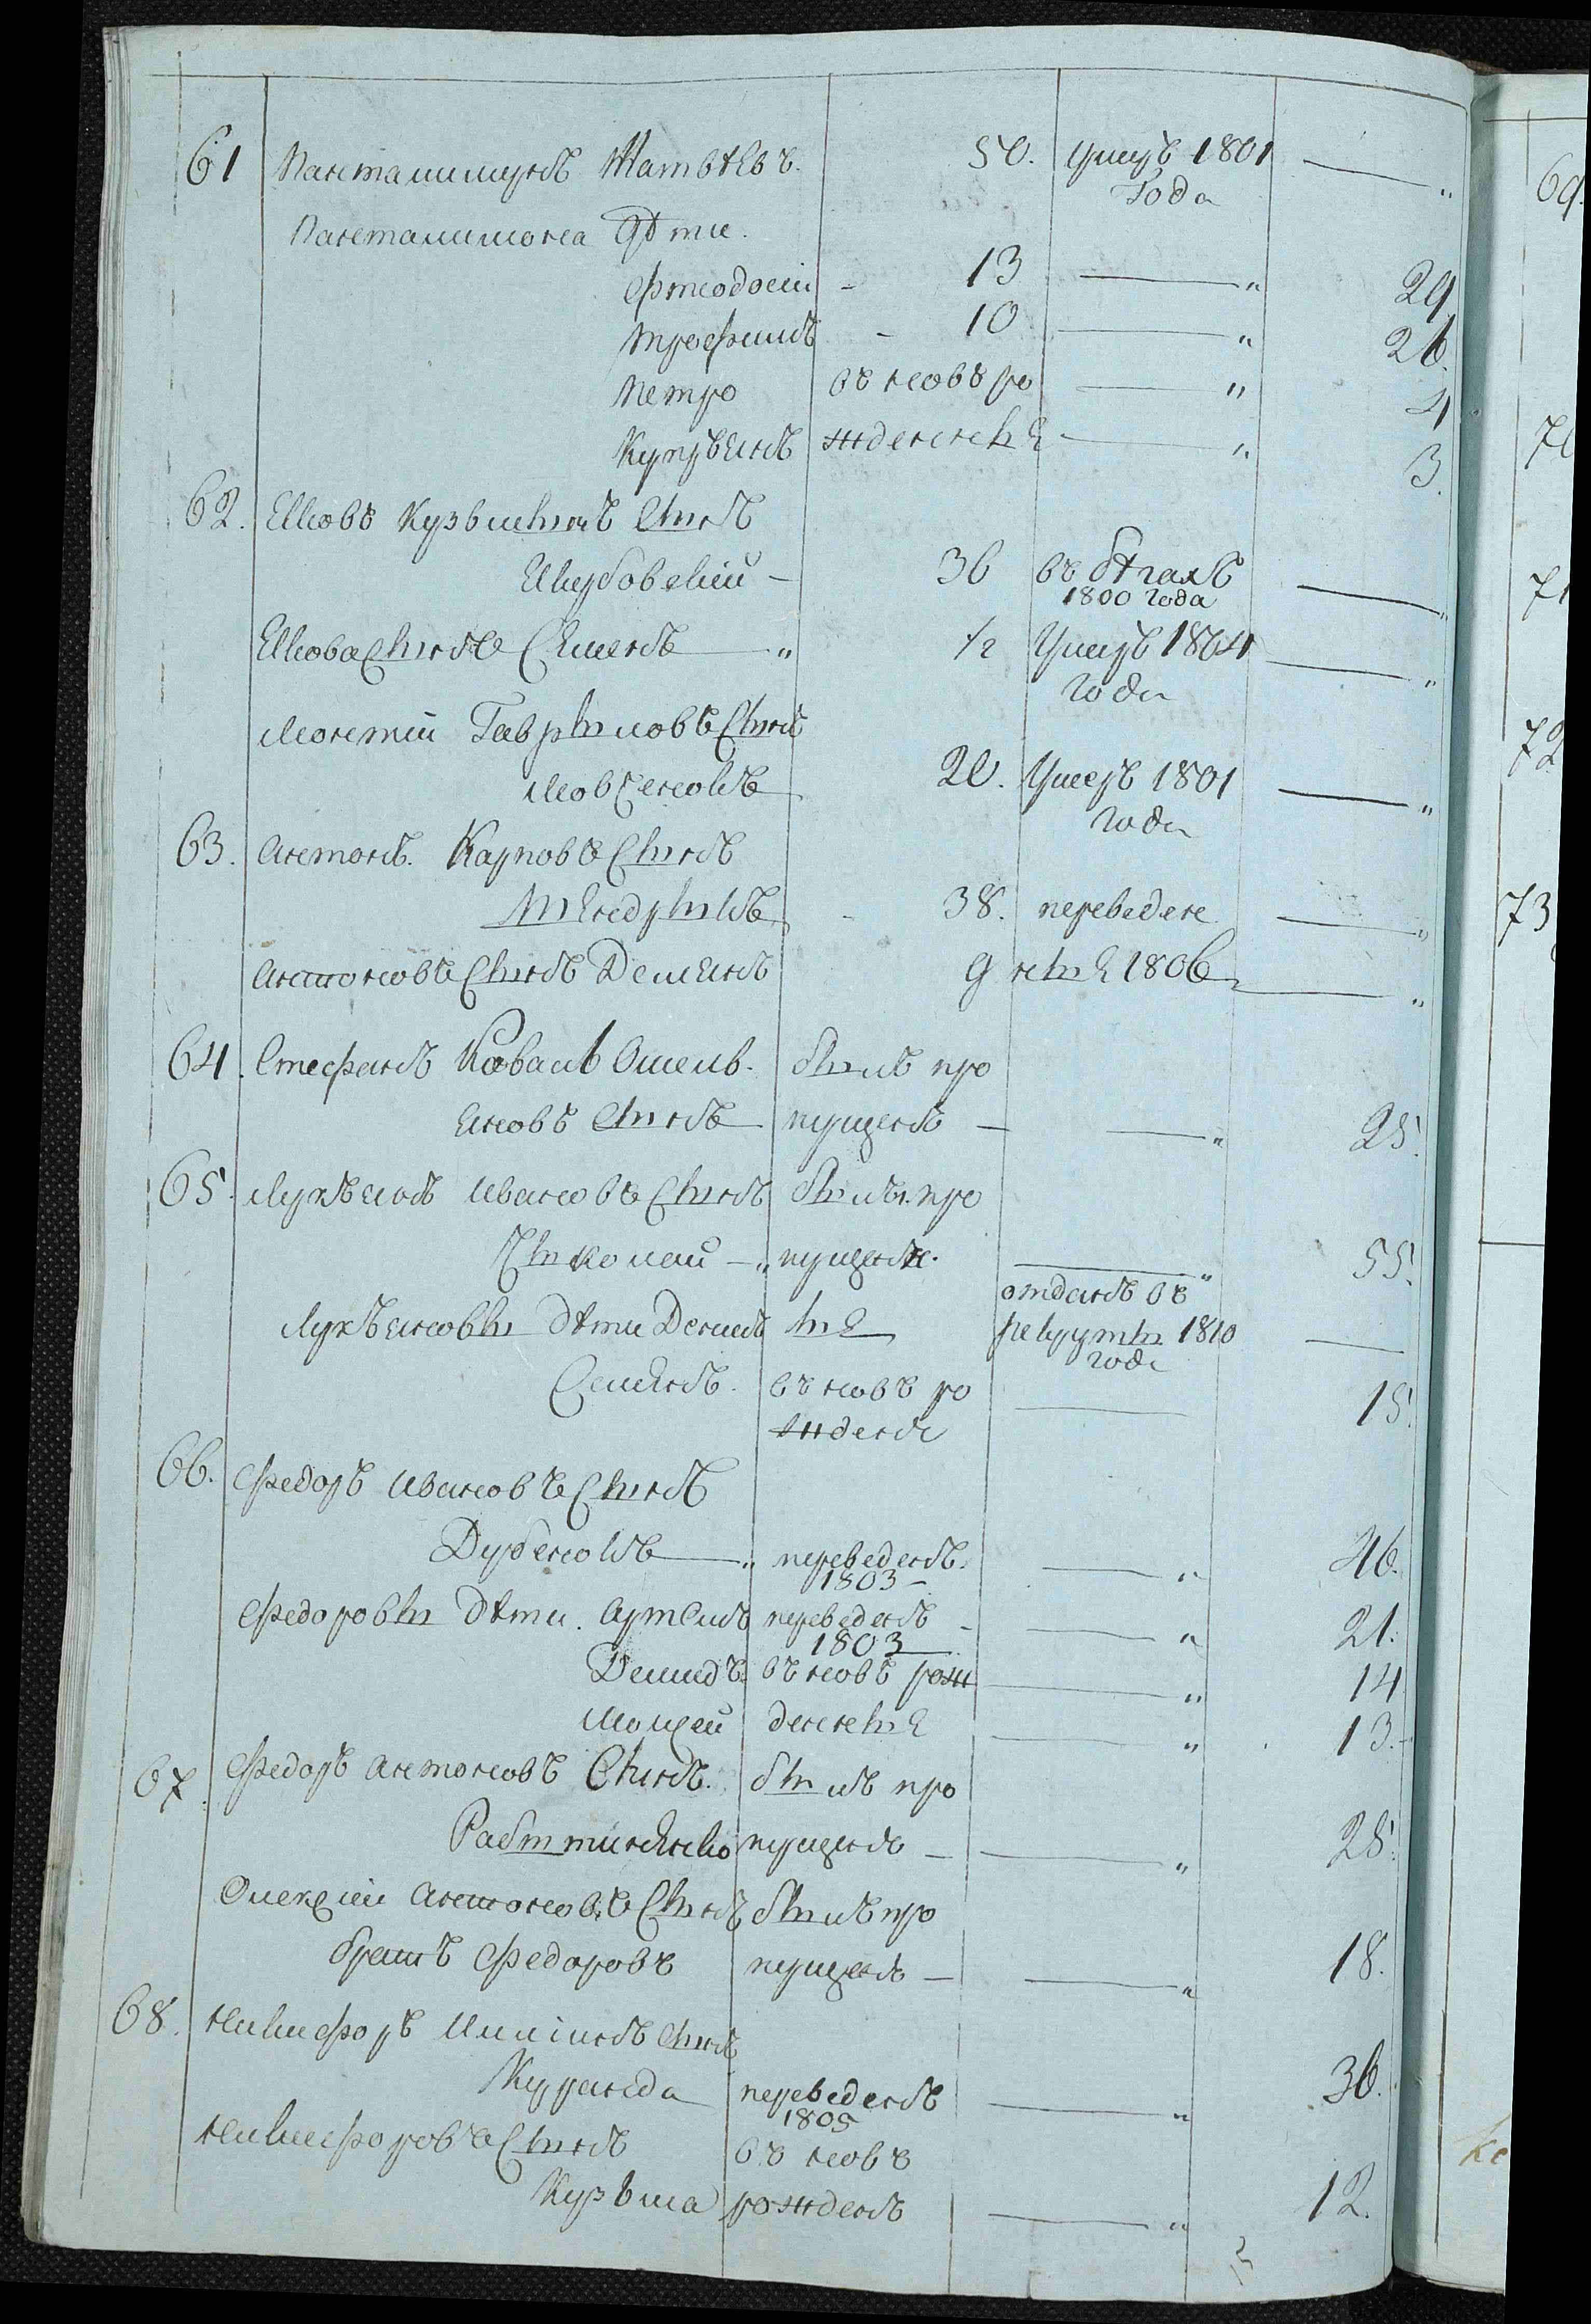 61 Панталимунъ Матвѣевъ. 50. умеръ 1801 года —
Панталимона Дѣти.
Феодосій - 13 — 29
Трофимъ - 10 — 26.
Петро въ новѣ ро — 4
Купріянъ жденные — 3.
62. Яковъ Кузьминъ Сынъ
Якубовскій — 36 въ бѣгахъ 1800 года —
Якова Сынъ Семенъ 1/2 Умеръ 1804 года —
Гавриловъ Сынъ
20. Умеръ 1801 года —
63. Антонъ Карповъ Сынъ
38. переведе —
Антоновъ Сынъ Демянъ 9 ны 1806 —
64. Стефанъ Коваль Омель. былъ про
яновъ Сынъ пущенъ — 25.
65. Лукьянъ Ивановъ Сынъ былъ про
пущенъ. — 55.
Лукьяновы дѣти Денисъ отданъ въ рекруты 1810 года —
Семенъ. въ новѣ ро — 15.
жденъ
66. Федоръ Ивановъ Сынъ
переведенъ. 1803 — 46.
Федоровы дѣти. Артемъ переведенъ 1803 — 21.
Демидъ. въ новѣ рож — 14
Мойсей денные — 13.
67. Федоръ Антоновъ Сынъ. былъ про
пущенъ — 28.
Олексій Антоновъ Сынъ былъ про
братъ Федоровъ пущенъ — 18.
68. Никифоръ Сынъ
переведенъ 1805 — 36.
Никифоровъ Сынъ въ новѣ
Кузьма рожденъ — 12.
69.
71
72
73